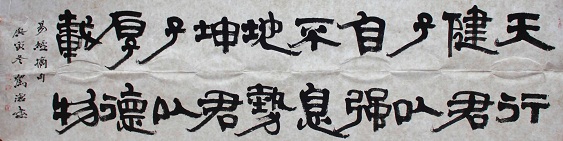 天行
健君
子以
自强
不息
地勢
坤君
子以
厚德
載物
易經摘句
庚寅冬